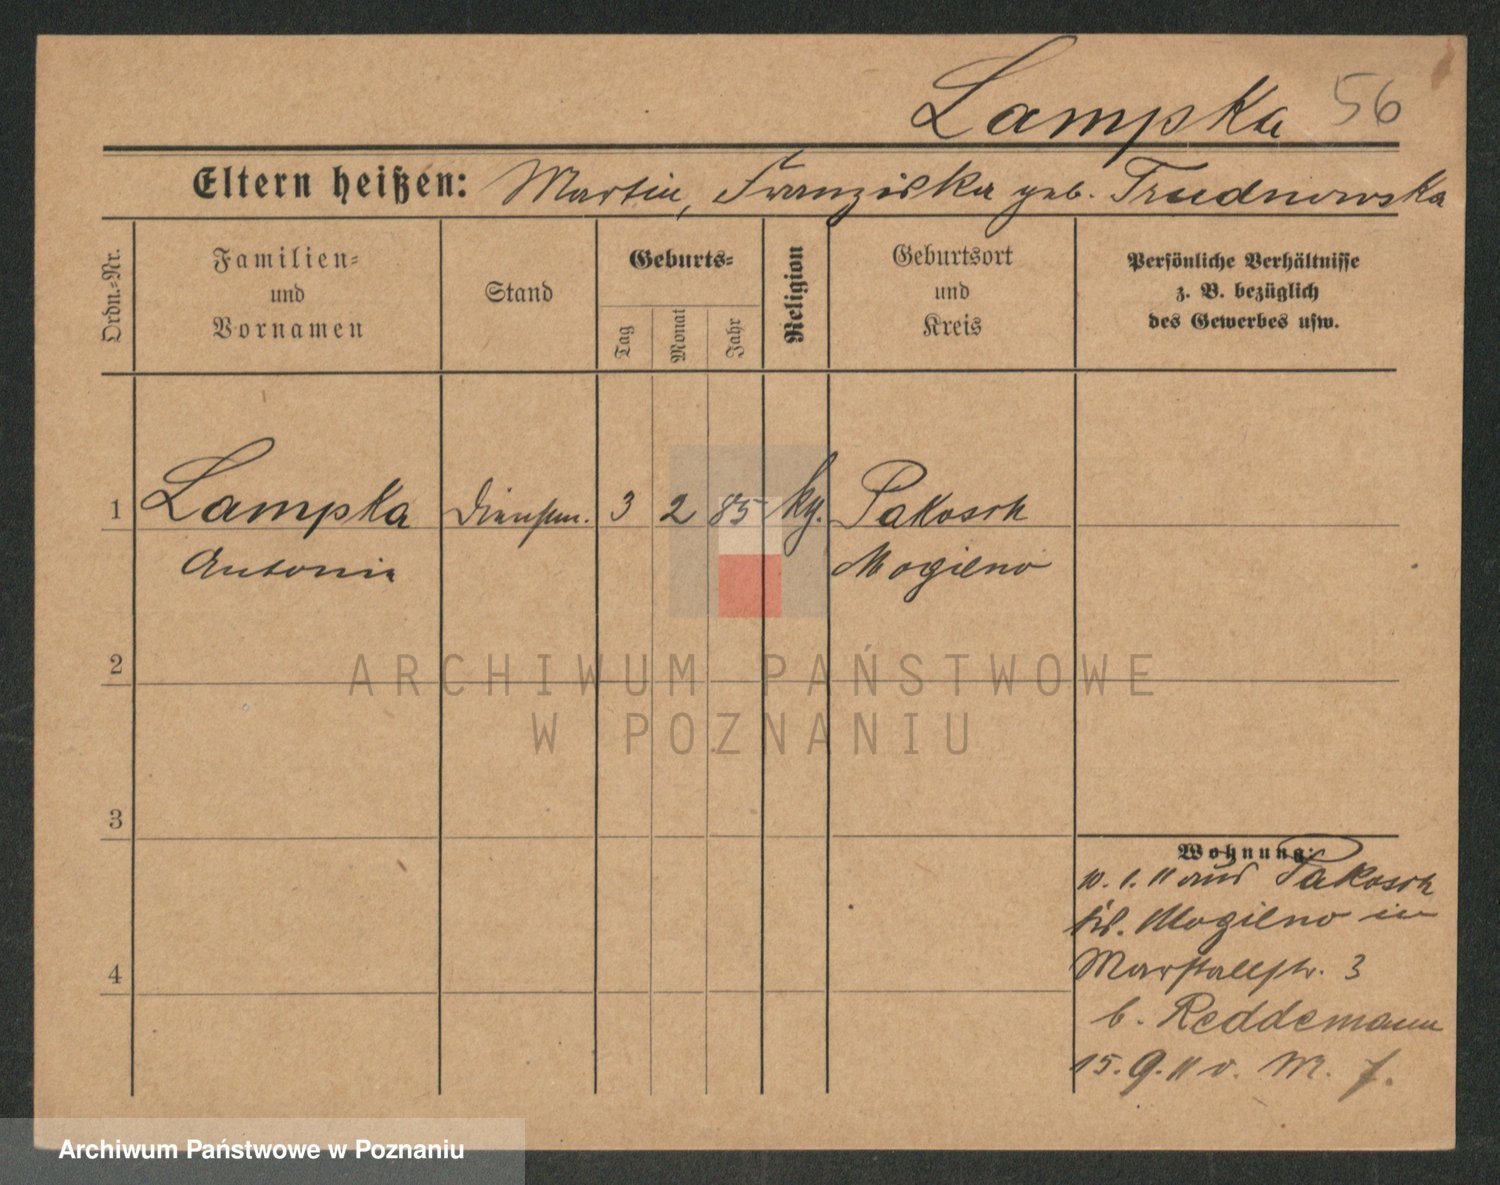 Lampka 56
Eltern heißen: Martin, Franziska geb. Trudnowska
Ordn.-Nr.
Familien-
und
Vornamen
Stand
Geburts-
Tag
Monat
Jahr
Religion
Geburtsort
und
Kreis
Persönliche Verhältnisse
z. B. bezüglich
des Gewerbes usw.
1 Lampka Dienstm. 3 2 85 kg. Pakosch
Antonia Mogilno
2
ARCHIWUM PAŃSTWOWE
W POZNANIU
3
Wohnung:
10. 1. 11 aus Pakosch
Kr. Mogilno in
Marstallstr. 3
b. Reddemann
15. 9. 11 v. M.
4
Archiwum Państwowe w Poznaniu